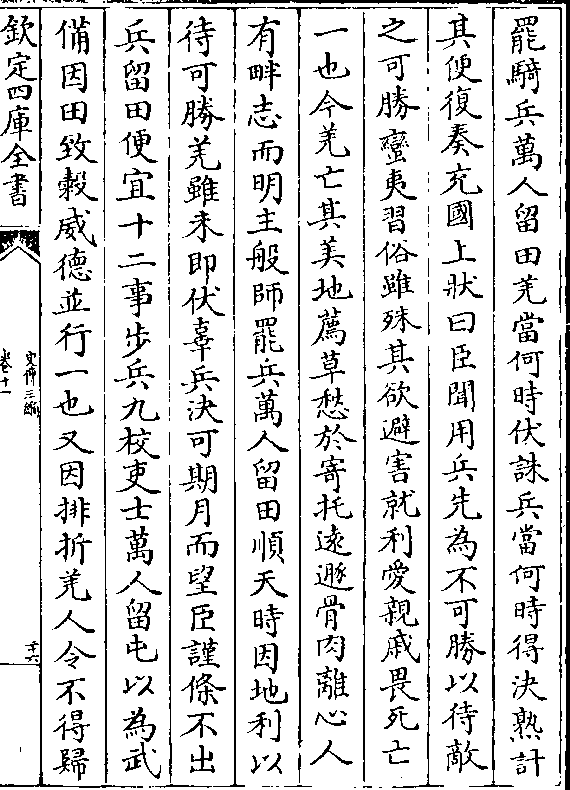 罷騎兵萬人留田羌當何時伏誅兵當何時得決熟計
其便復奏充國上狀曰臣聞用兵先為不可勝以待敵
之可勝蠻夷習俗雖殊其欲避害就利愛親戚畏死亡
一也今羌亡其美地薦草愁於寄托遠遯骨肉離心人
有畔志而明主般師罷兵萬人留田順天時因地利以
待可勝羌雖未即伏辜兵決可期月而望臣謹條不出
兵留田便宜十二事步兵九校吏士萬人留屯以為武
備因田致糓威德並行一也又因排折羌人令不得歸
欽定四庫全書
史傳三編
卷十一
三十六